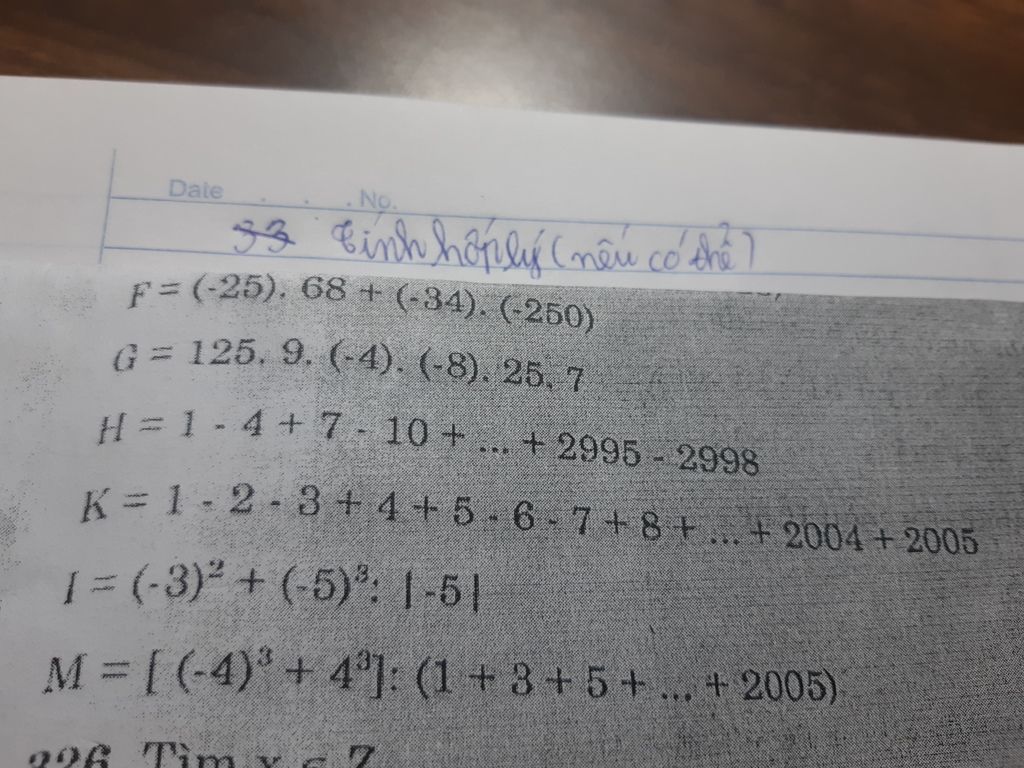 Date . . . No.
33 Tính hợp lý (nếu có thể)
F = (-25). 68 + (-34). (-250)
G = 125. 9. (-4). (-8). 25. 7
H = 1 - 4 + 7 - 10 + ... + 2995 - 2998
K = 1 - 2 - 3 + 4 + 5 - 6 - 7 + 8 + ... + 2004 + 2005
I = (-3)² + (-5)³: |-5|
M = [ (-4)³ + 4³]: (1 + 3 + 5 + ... + 2005)
226. Tìm x ∈ Z